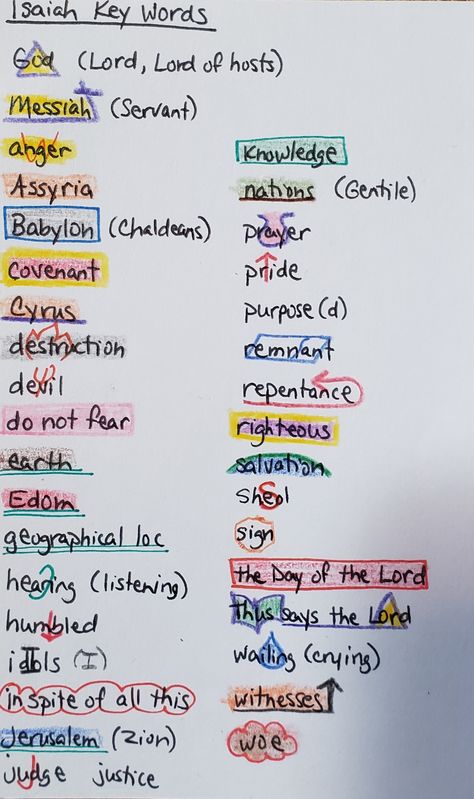 Isaiah Key Words
God (Lord, Lord of hosts)
Messiah (Servant)
anger
Assyria
Babylon (Chaldeans)
Covenant
Cyrus
destruction
devil
do not fear
earth
Edom
geographical loc
hearing (listening)
humbled
idols (I)
in spite of all this
Jerusalem (Zion)
judge justice
Knowledge
nations (Gentile)
prayer
pride
purpose (d)
remnant
repentance
righteous
salvation
sheol
sign
the Day of the Lord
thus says the Lord
wailing (crying)
witnesses
woe